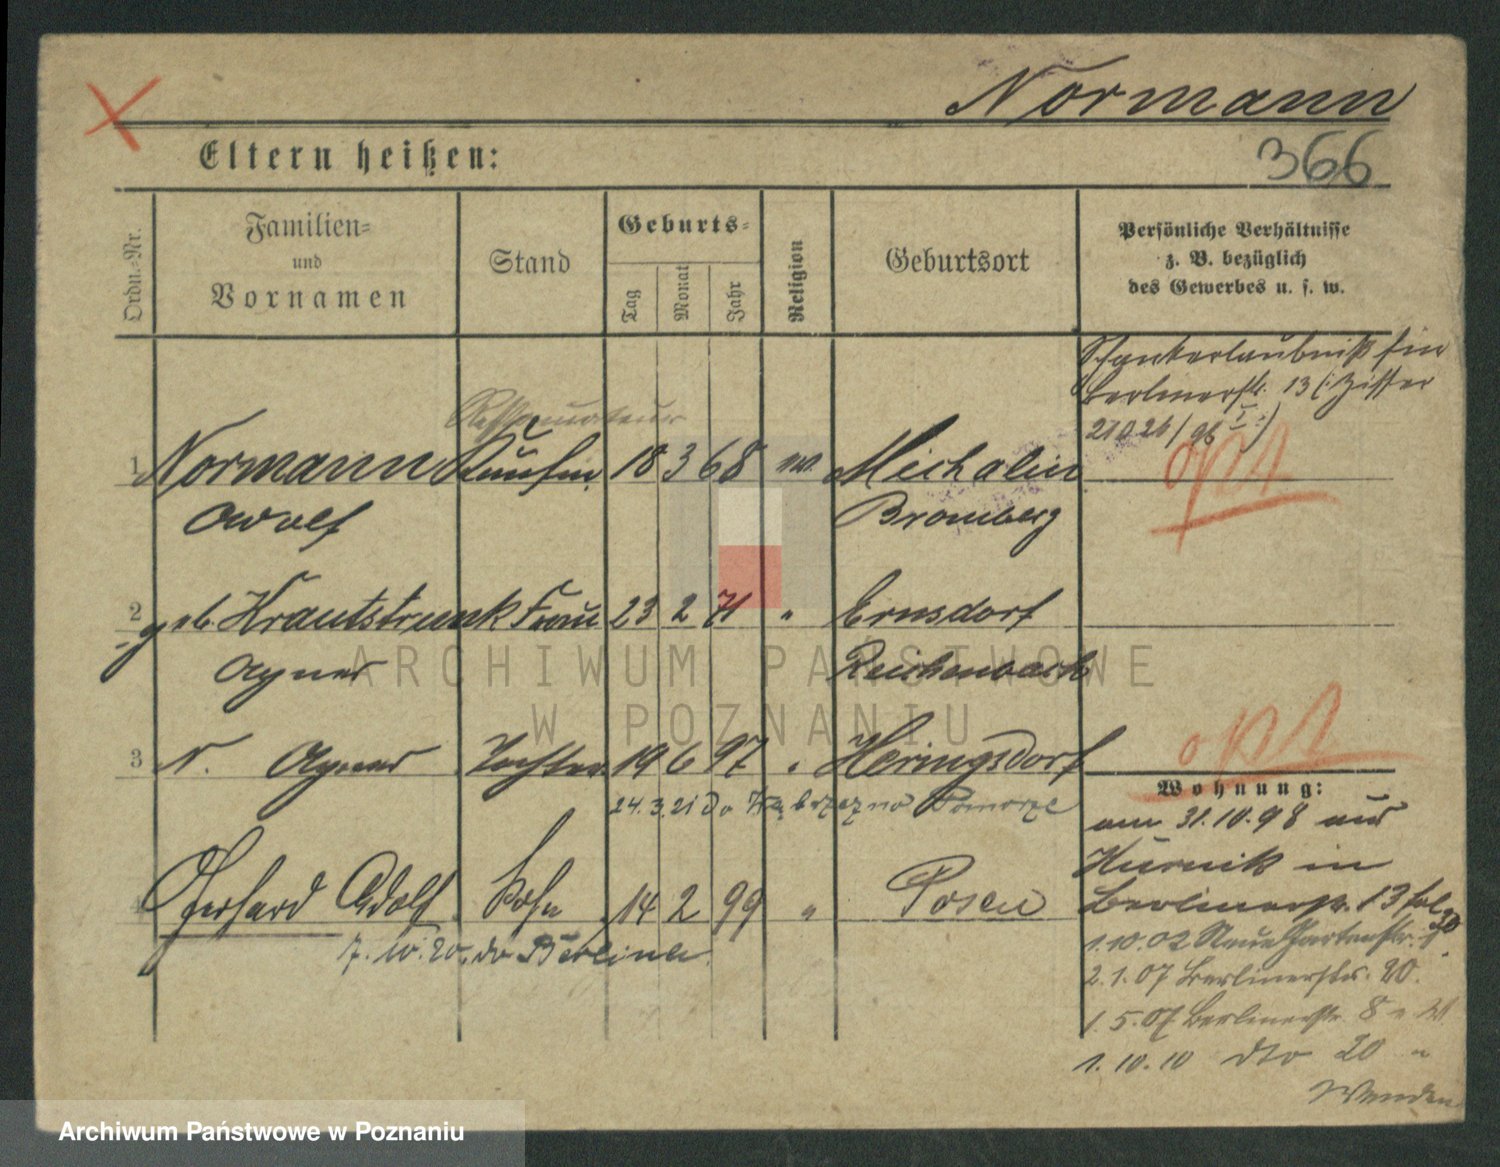 Normann
366
Eltern heißen:
Ordn.-Nr.
Familien-
und
Vornamen
Stand
Geburts-
Tag
Monat
Jahr
Religion
Geburtsort
Persönliche Verhältnisse
z. B. bezüglich
des Gewerbes u. s. w.
Schankerlaubniß für
Berlinerstr. 13 (: Ziffer
Restaurateur
1 Normann Kaufm. 18 3 68 Michalin
opt
Adolf Bromberg
2 geb. Krautstrunk Frau 23 2 71 " Ernsdorf
Agnes Reichenbach
opt
3 N. Agnes Tochter 19 6 97 " Heringsdorf
24.3.21 do Wąbrzeźno Pomorze
Wohnung:
am 31.10.98 aus
Kurnik in
4 Gerhard Adolf Sohn 14 2 99 " Posen
Berlinerstr. 13
7.10.20. do Berlina
1.10.02 Neue Gartenstr.
2.1.07 Berlinerstr. 20.
1.5.07 Berlinerstr. 8
1.10.10 dto 20
Wenden
ARCHIWUM PAŃSTWOWE
W POZNANIU
Archiwum Państwowe w Poznaniu